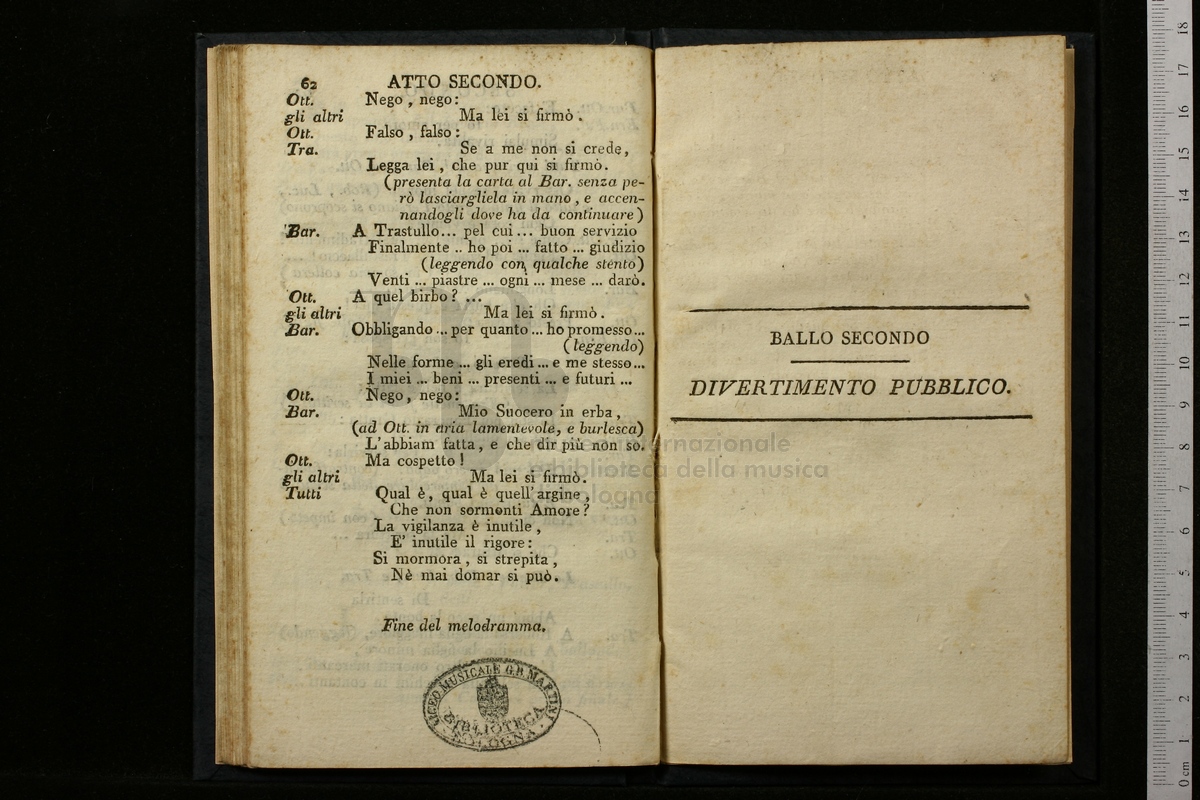 62 ATTO SECONDO.
Ott. Nego, nego:
gli altri Ma lei si firmò.
Ott. Falso, falso:
Tra. Se a me non si crede,
Legga lei, che pur qui si firmò.
(presenta la carta al Bar. senza pe-
rò lasciargliela in mano, e accen-
nandogli dove ha da continuare)
Bar. A Trastullo... pel cui... buon servizio
Finalmente .. ho poi ... fatto ... giudizio
(leggendo con qualche stento)
Venti ... piastre ... ogni ... mese ... darò.
Ott. A quel birbo? ...
gli altri Ma lei si firmò.
Bar. Obbligando ... per quanto ... ho promesso...
(leggendo)
Nelle forme ... gli eredi ... e me stesso...
I miei ... beni ... presenti ... e futuri ...
Ott. Nego, nego:
Bar. Mio Suocero in erba,
(ad Ott. in aria lamentevole, e burlesca)
L'abbiam fatta, e che dir più non so.
Ott. Ma cospetto!
gli altri Ma lei si firmò.
Tutti Qual è, qual è quell'argine,
Che non sormonti Amore?
La vigilanza è inutile,
E' inutile il rigore:
Si mormora, si strepita,
Nè mai domar si può.
Fine del melodramma.
LICEO MUSICALE G.B. MARTINI
BIBLIOTECA
BOLOGNA
BALLO SECONDO
DIVERTIMENTO PUBBLICO.
internazionale
e biblioteca della musica
0 cm 1 2 3 4 5 6 7 8 9 10 11 12 13 14 15 16 17 18